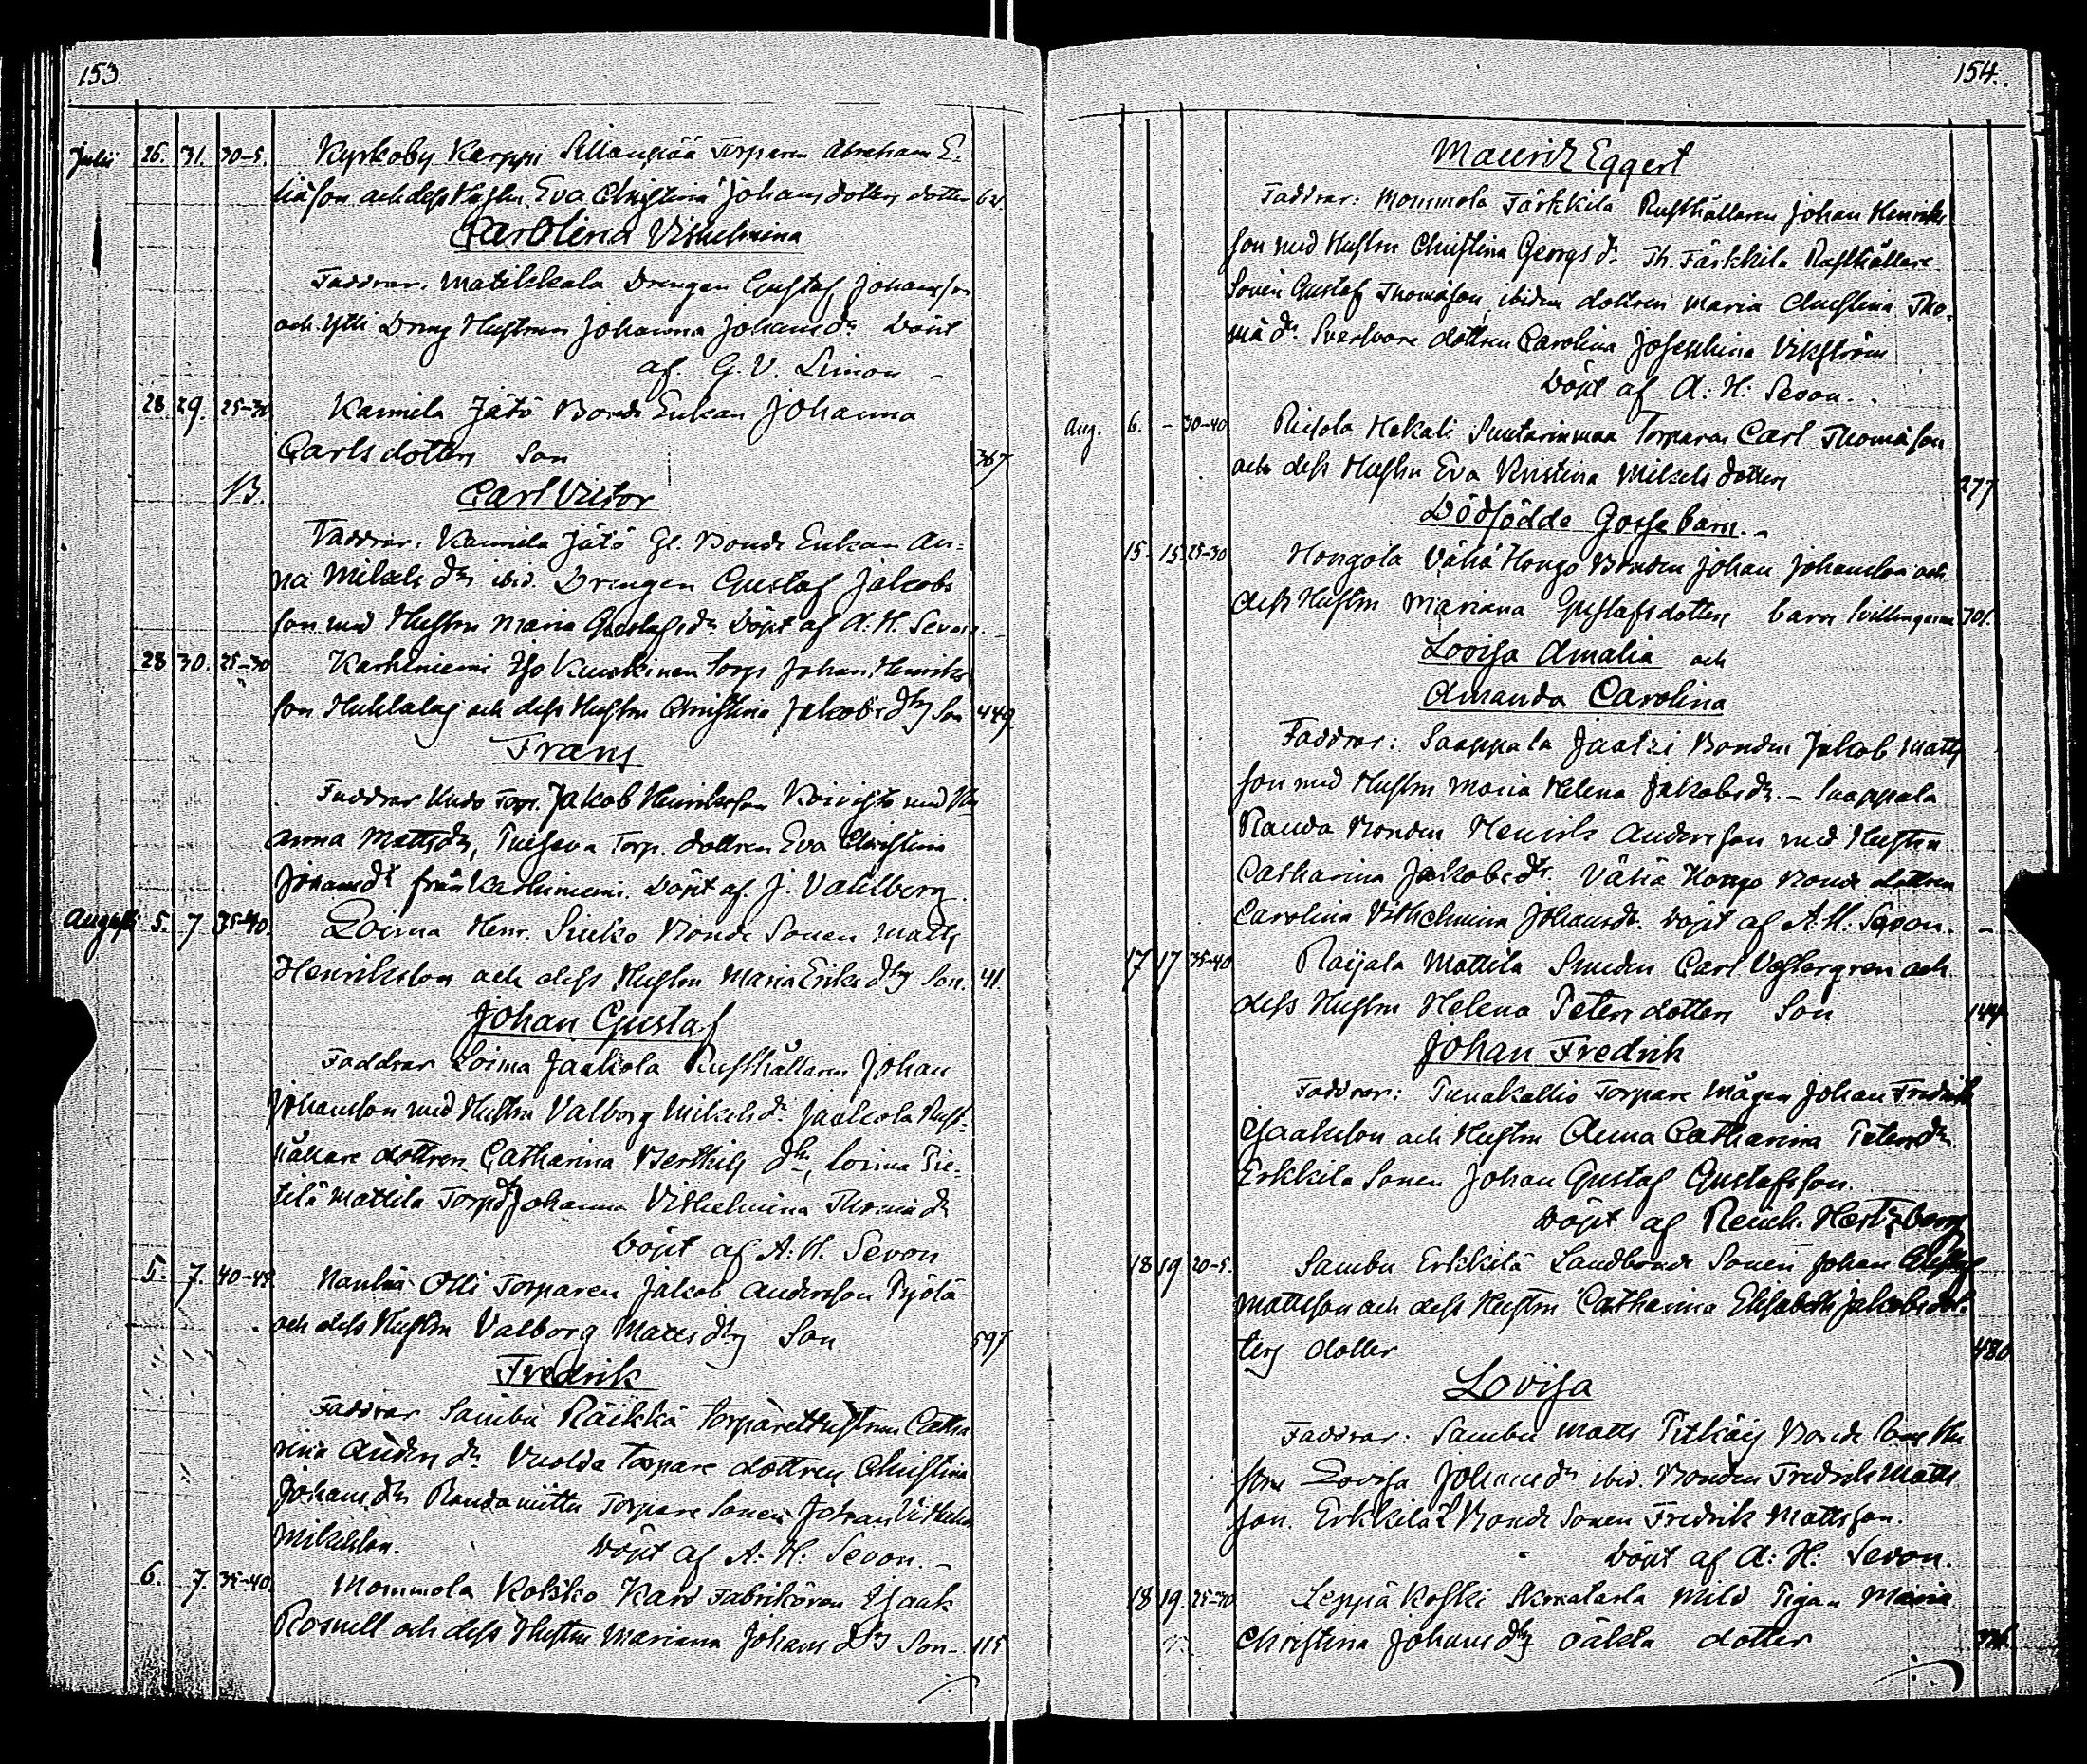 153.
Julii 26. 31. 30-5. Kyrkoby Karppi Sillanpää Torparen Abraham E-
liasson och dess Hustru Eva Christina Johansdotters dotter 62.
Carolina Vilhelmina
Faddrar: Matikkala Drengen Gustaf Johansson
och Ylli Dreng Hustrun Johanna Johans dr Döpt
af G. V. Limon -
28 29. 25-30 Karmela Jätö Bonde Enkan Johanna
Carlsdotters Son 367
B. Carl Victor
Faddrar: Karmela Jätö Gl. Bonde Enkan An=
na Mikels dtr ibid. Drengen Gustaf Jakobs
son med Hustru Maria Gustafs dr Döpt af A. H. Sevon. -
28 30. 25-30 Karhiniemi Torp Johan Henriks
son och dess Hustru Christina Jakobs dtrs Son 449
Frans
Faddrar Torp. Jakob Henriksson Koivisto med
anna Matts dtr, Torp. dottren Eva Christina
Johans dr från Karhiniemi. Döpt af J. Vahlberg.
Augusti 5. 7 35-40. Loima Henr. Sinko Bonde Sonen Matts
Henriksson och dess Hustru Maria Eriks dtrs Son. 41.
Johan Gustaf
Faddrar Loima Jaakola Rusthållaren Johan
Johansson med Hustru Valborg Mikels dr Jaakola Rust-
hållare dottren Catharina Bertkils dtr, Loima Pie-
tilä Mattila Torp dr Johanna Vilhelmina Thomæ dr
Döpt af A. H. Sevon
5. 7. 40-45. Olli Torparen Jakob Andersson Pyölä
och dess Hustru Valborg Matts dtrs Son 597
Fredrik
Faddrar Sambu Räikkä Torpare Hustrun Catha
rina Anders dr Vuolda Torpare dottren Christina
Johans dtr Randanittu Torpare Sonen Johan Vilhelm
Mikelsson. Döpt af A. H. Sevon. -
6. 7. 35-40. Mommola Kokko Kard Fabrikören Isaak
Rosnell och dess Hustru Mariana Johans dtrs Son - 115
154.
Mauritz Eggert
Faddrar: Mommola Färkkilä Rusthållaren Johan Henriks
son med Hustru Christina Georgs dr Th. Färkkilä Rusthållare
Sonen Gustaf Thomasson, ibidem dottren Maria Christina Tho-
mæ dr Svarfvare dottren Carolina Josephina Vikström
Döpt af A. H. Sevon.
Aug. 6. - 30-40 Risola Hakali Suutarinmaa Torparen Carl Thomasson
och dess Hustru Eva Kristina Mikelsdotters 277
Dödfödde Gossebarn. -
15. 15. 25-30 Hongola Vähä Hongo Bonden Johan Johansson och
dess Hustru Mariana Gustafsdotters barn tvillingarna 301.
Lovisa Amalia och
Amanda Carolina
Faddrar: Saappala Jaakri Bonden Jakob Matts
son med Hustru Maria Helena Jakobs dr. - Saappala
Randa Bonden Henrik Andersson med Hustru
Catharina Jakobs dr. Vähä Hongo Bonde dottren
Carolina Vilhelmina Johans dr. Döpt af A. H. Sevon. -
17 17 35-40 Raijala Mattila Smeden Carl Vestergren och
dess Hustru Helena Petersdotters Son 144
Johan Fredrik
Faddrar: Punakallio Torpare Mågen Johan Fredrik
Isaaksson och Hustru Anna Catharina Peters dtr
Erkkilä Sonen Johan Gustaf Gustafsson.
Döpt af Reinh. Hertzberg
18 19 20-5. Sambu Erkkilä Landbonde Sonen Johan
Mattsson och dess Hustru Catharina Elisabeth Jakobsdot-
ters dotter 480
Lovisa
Faddrar: Sambu Matts Pitkäis Bonde Sons Hu
strun Lovisa Johans dtr ibid. Bonden Fredrik Matts
son. Erkkilä Bonde Sonen Fredrik Mattsson.
Döpt af A. H. Sevon.
18 19. 25-30 Leppäkoski Mild Pigan Maria
Christina Johans dtrs oäkta dotter